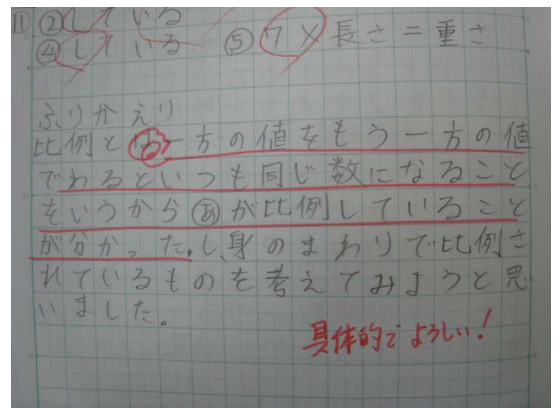 11 ②している
④している ⑤7×長さ=重さ
ふりかえり
比例とは一方の値をもう一方の値
でわるといつも同じ数になること
をいうからあが比例していること
が分かった。し、身のまわりで比例さ
れているものを考えてみようと思
いました。
具体的でよろしい!